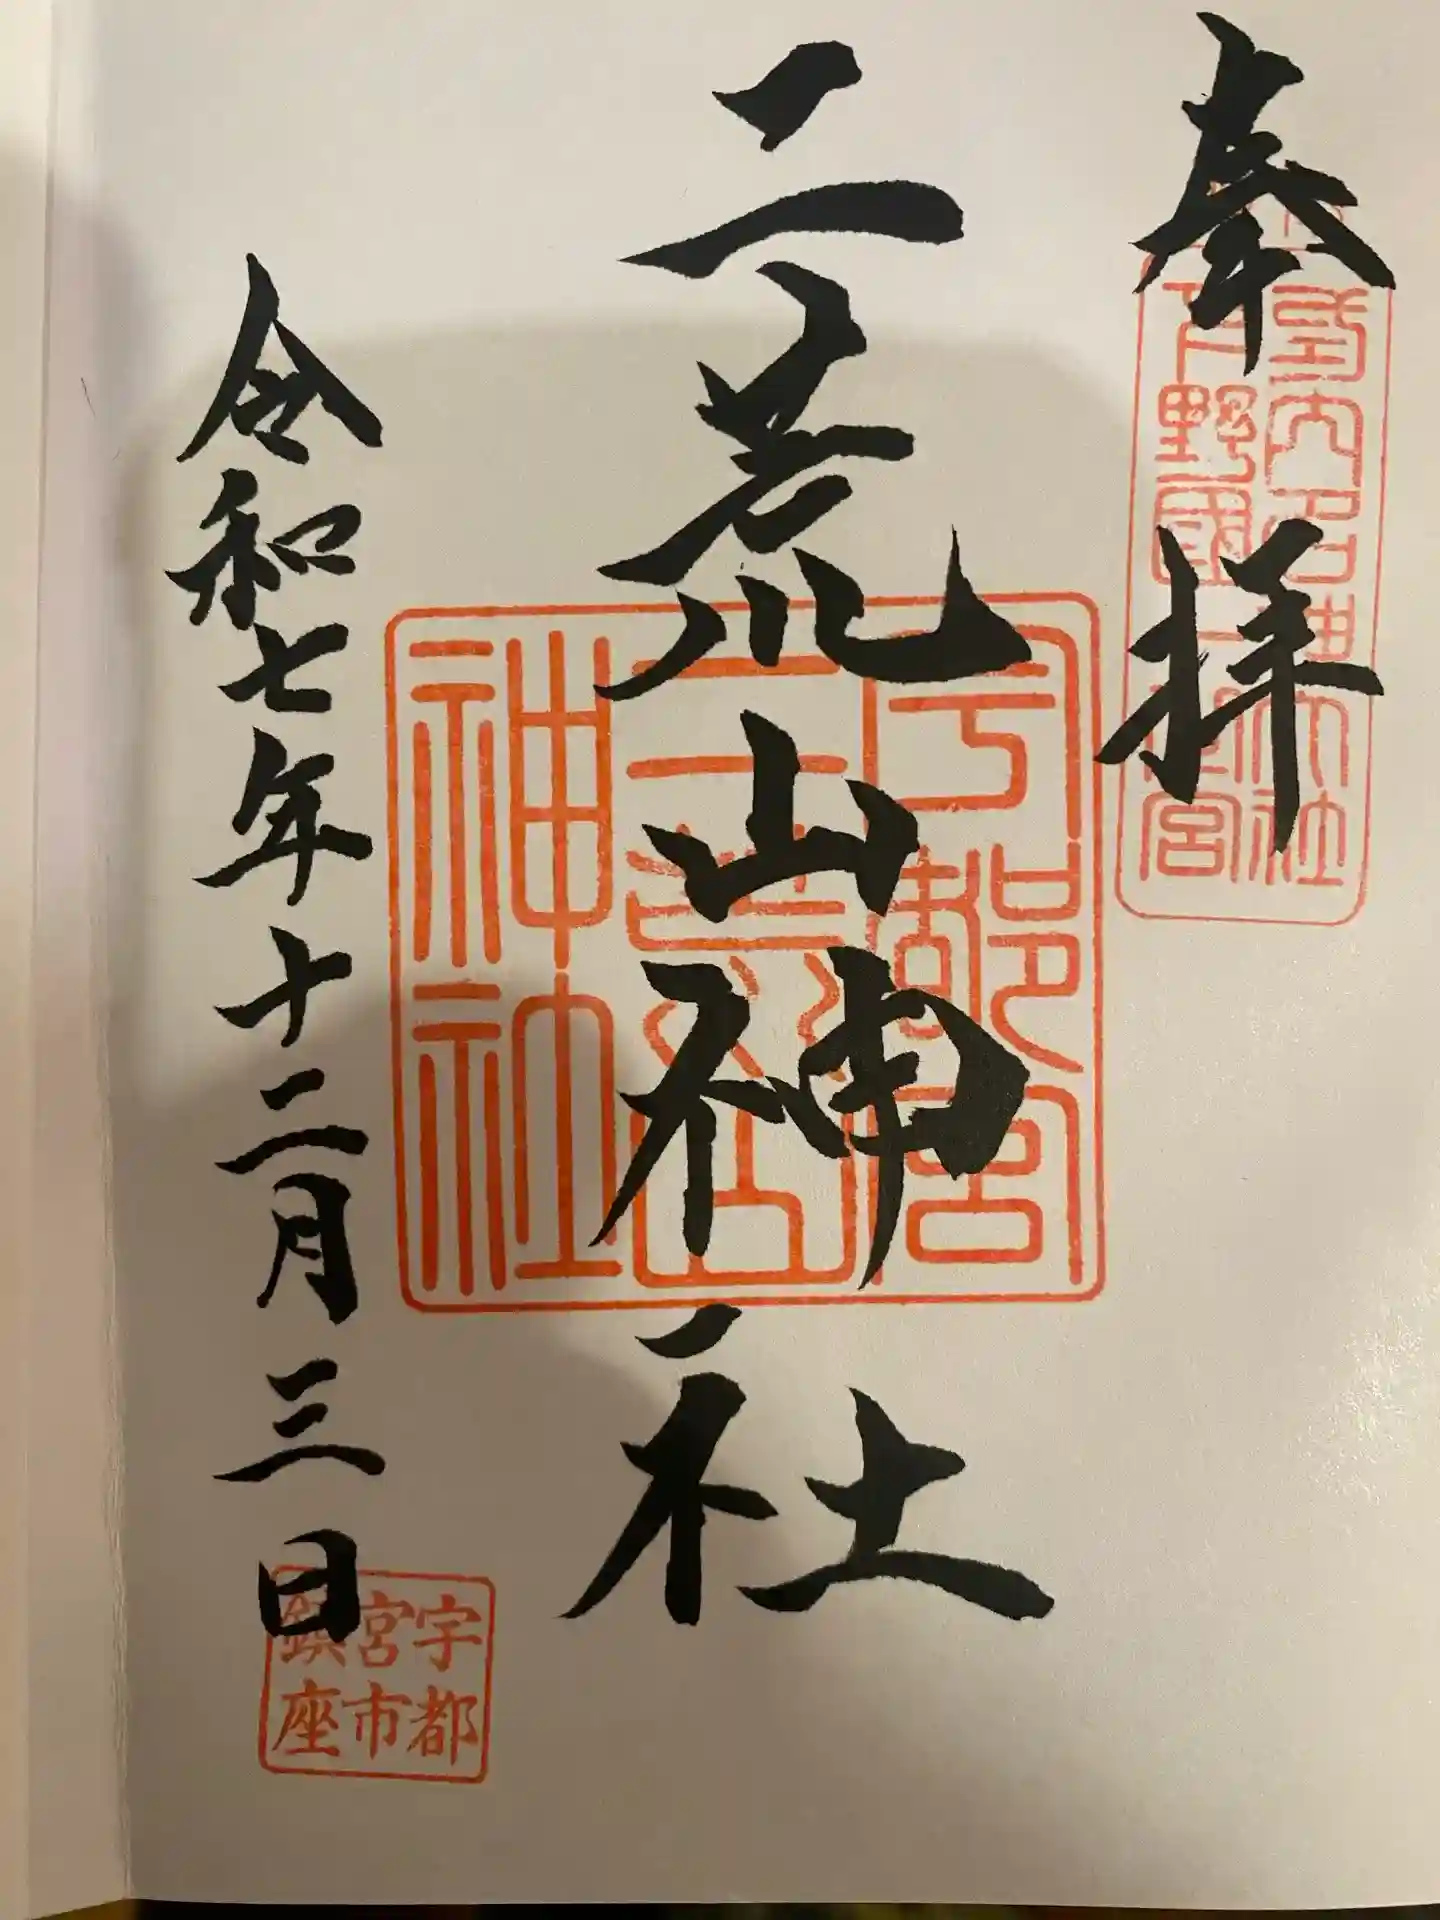 奉拝
延喜式内名神大社
下野國一之宮
二荒山神社
宇都宮
二荒山
神社
令和七年十二月三日
宇都
宮市
鎮座